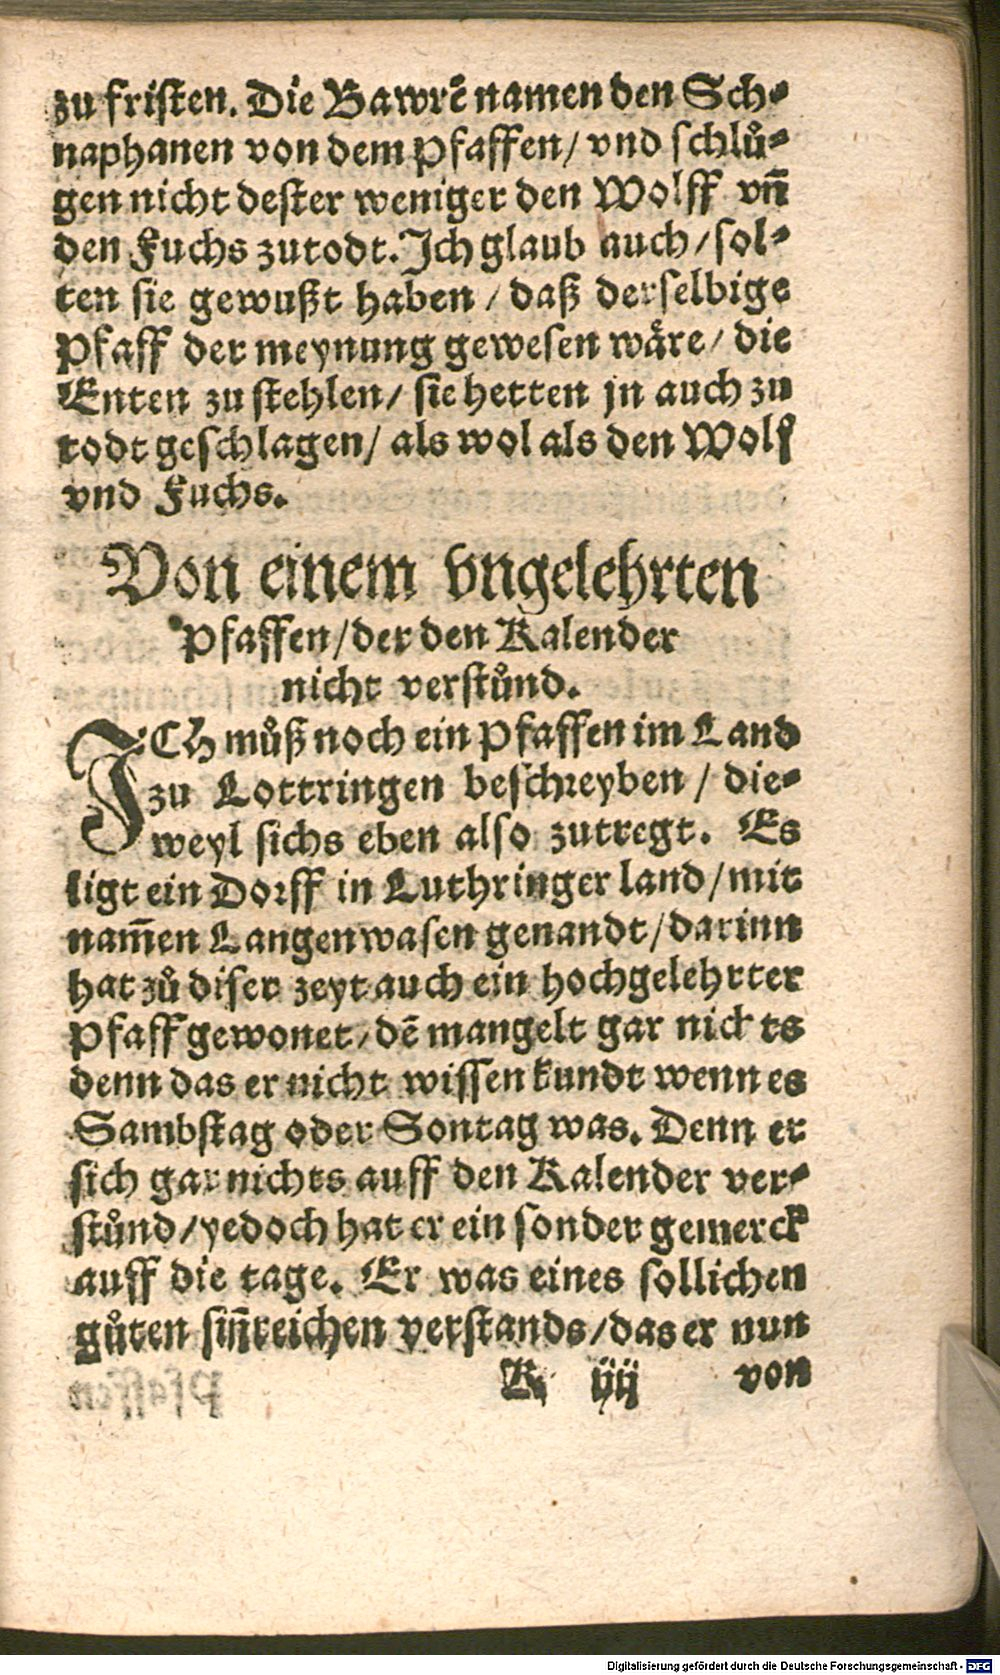 zu fristen. Die Bawrē namen den Sch⸗
naphanen von dem Pfaffen/ vnd schlů⸗
gen nicht dester weniger den Wolff vñ
den Fuchs zutodt. Ich glaub auch/ sol⸗
ten sie gewußt haben / daß derselbige
Pfaff der meynung gewesen wäre/ die
Enten zu stehlen/ sie hetten jn auch zu
todt geschlagen/ als wol als den Wolf
vnd Fuchs.
Von einem vngelehrten
Pfaffen/ der den Kalender
nicht verstůnd.
ICh můß noch ein Pfaffen im Land
zu Lottringen beschreyben / die⸗
weyl sichs eben also zutregt. Es
ligt ein Dorff in Luthringer land/ mit
nam̄en Langenwasen genandt/ darinn
hat zů diser zeyt auch ein hochgelehrter
Pfaff gewonet/ dē mangelt gar nichts
denn das er nicht wissen kundt wenn es
Sambstag oder Sontag was. Denn er
sich gar nichts auff den Kalender ver⸗
stůnd/ yedoch hat er ein sonder gemerck
auff die tage. Er was eines sollichen
gůten sin̄reichen verstands/ das er nun
K iiij von
Digitalisierung gefördert durch die Deutsche Forschungsgemeinschaft - DFG